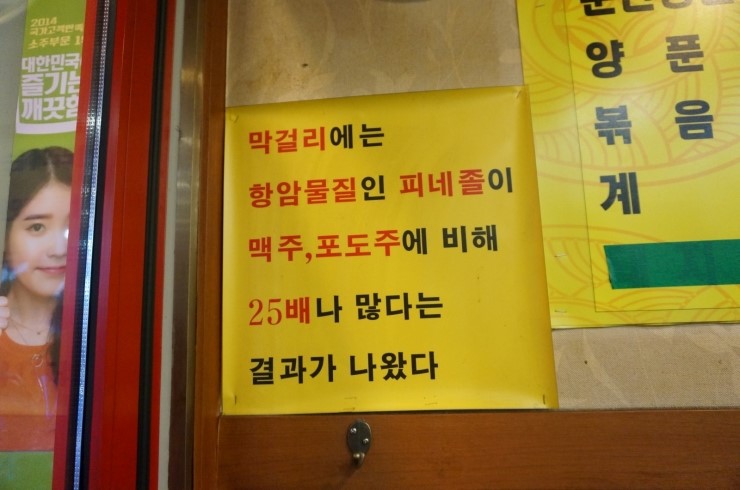 2014
대한민국
즐기는
깨끗한
막걸리에는
항암물질인 피네졸이
맥주,포도주에 비해
25배나 많다는
결과가 나왔다
양 푼
볶 음
계